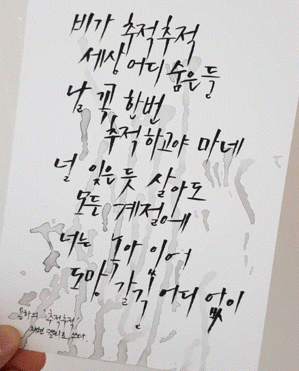 비가 추적추적
세상 어디 숨은들
날 꼭 한번
추적하고야 마네
널 잊은 듯 살아도
모든 계절에
너는 녹아 있어
도망갈 길 어디 없이
윤하의 "추적추적"